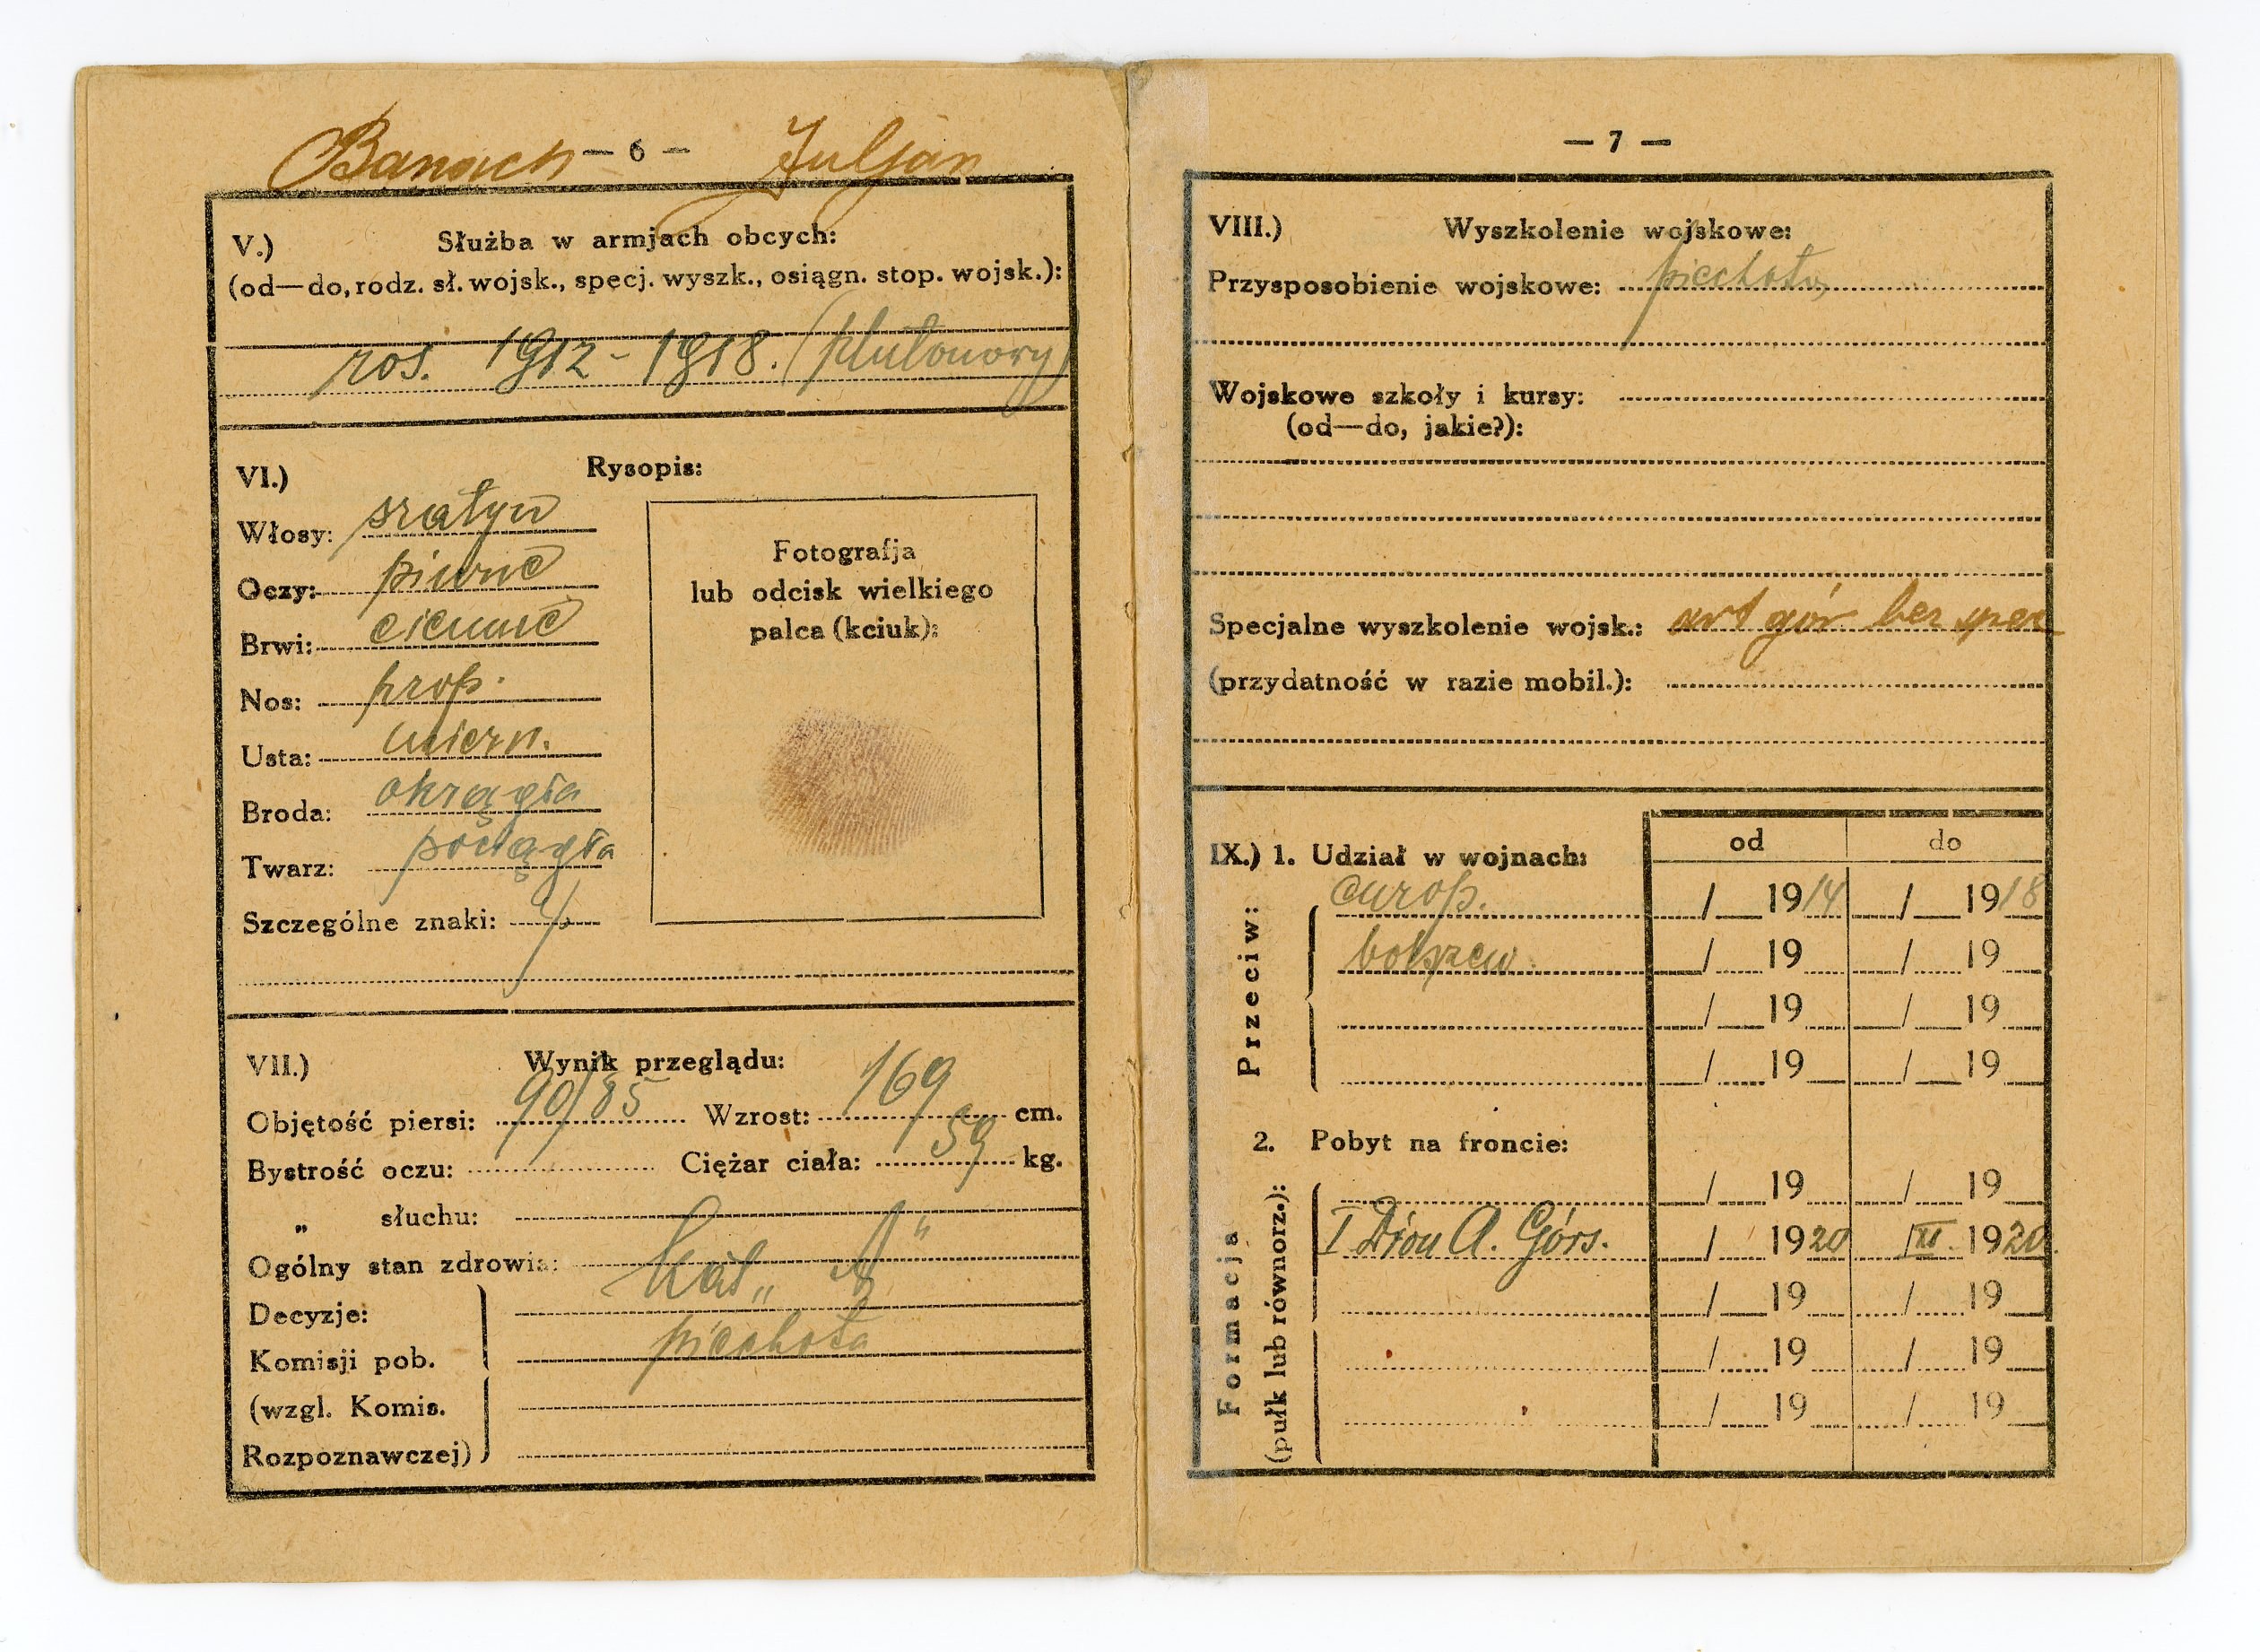 Banach — 6 — Juljan
V.) Służba w armjach obcych:
(od—do, rodz. sł. wojsk., specj. wyszk., osiągn. stop. wojsk.):
ros. 1912 - 1918. (plutonowy)
VI.) Rysopis:
Włosy: szatyn
Oczy: piwne
Brwi: ciemne
Nos: prop.
Usta: miern.
Broda: okrągła
Twarz: pociągła
Szczególne znaki:
Fotografja
lub odcisk wielkiego
palca (kciuk):
VII.) Wynik przeglądu:
Objętość piersi: 90/85 Wzrost: 169 cm.
Bystrość oczu: Ciężar ciała: 59 kg.
„ słuchu:
Ogólny stan zdrowia: Kat „A"
Decyzje:
Komisji pob. piechota
(wzgl. Komis.
Rozpoznawczej)
— 7 —
VIII.) Wyszkolenie wojskowe:
Przysposobienie wojskowe: piechota
Wojskowe szkoły i kursy:
(od—do, jakie?):
Specjalne wyszkolenie wojsk.: art gór bez spec
(przydatność w razie mobil.):
IX.) 1. Udział w wojnach: od do
Przeciw:
europ. / 1914 / 1918
bolszew. / 19 / 19
/ 19 / 19
/ 19 / 19
2. Pobyt na froncie:
Formacja
(pułk lub równorz.):
/ 19 / 19
I Dion A. Górs. / 1920 / 1920
/ 19 / 19
/ 19 / 19
/ 19 / 19